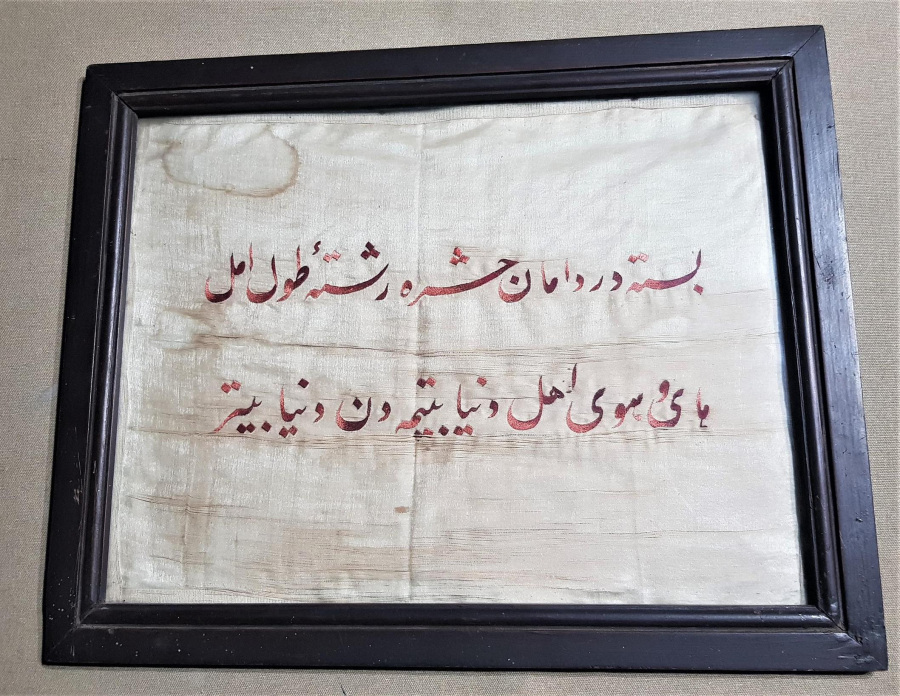 بسته در دامان حشره رشتهٔ طول امل
های و هوی اهل دنیا بتمه دن دنیا بیتر